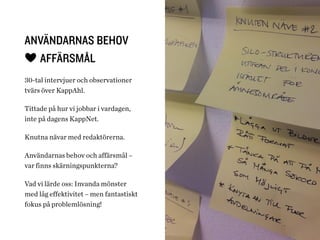 ANVÄNDARNAS BEHOV
♥ AFFÄRSMÅL
30-tal intervjuer och observationer
tvärs över KappAhl.
Tittade på hur vi jobbar i vardagen,
inte på dagens KappNet.
Knutna nävar med redaktörerna.
Användarnas behov och affärsmål –
var finns skärningspunkterna?
Vad vi lärde oss: Invanda mönster
med låg effektivitet – men fantastiskt
fokus på problemlösning!
KNUTEN NÄVE #2
SILO-STRUKTUREN
UTIFRÅN DEL I KON
ISTÄLLET FÖR
ÄMNESOMRÅDE
* LÄGGA UT BILDER
RÄTT FORMAT
* TÄNKA PÅ ATT FÅ M
SÅ MÅNGA SÖKORD
SOM MÖJLIGT
* KNYTA AN TILL FLER
AVDELNINGAR